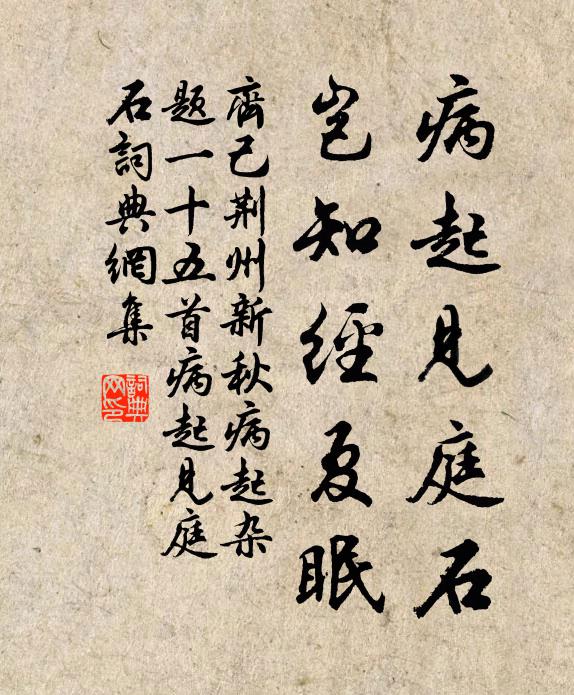 病起見庭石
岂知經夏眠
齊己荆州新秋病起杂
题一十五首病起見庭
石詞典網集
詞典
网印